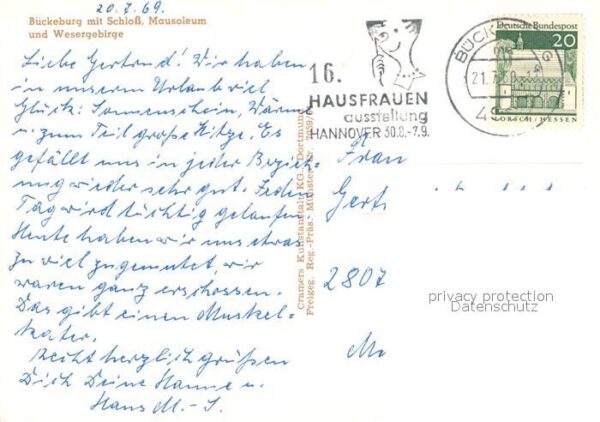 20.7.69.
Bückeburg mit Schloß, Mausoleum
und Wesergebirge
Liebe Gertrud! Wir haben
in unserem Urlaub viel
Glück: Sonnenschein, Wärme
u. zum Teil große Hitze. Es
gefällt uns in jeder Bezieh-
ung wieder sehr gut. Jeden
Tag wird tüchtig gelaufen.
Heute haben wir uns etwas
zu viel zugemutet, wir
waren ganz erschossen.
Das gibt einen Muskel-
kater.
Recht herzlich grüßen
Dich Deine Hanne u.
Hans M.-S.
Cramers Kunstanstalt KG., Dortmund
Freigeg. Reg.-Präs. Münster Nr.
16.
HAUSFRAUEN
ausstellung
HANNOVER 30.8.-7.9.
BÜCK
21.7.69
Deutsche Bundespost
20
LORSCH/HESSEN
Frau
Gert
2807
privacy protection
Datenschutz